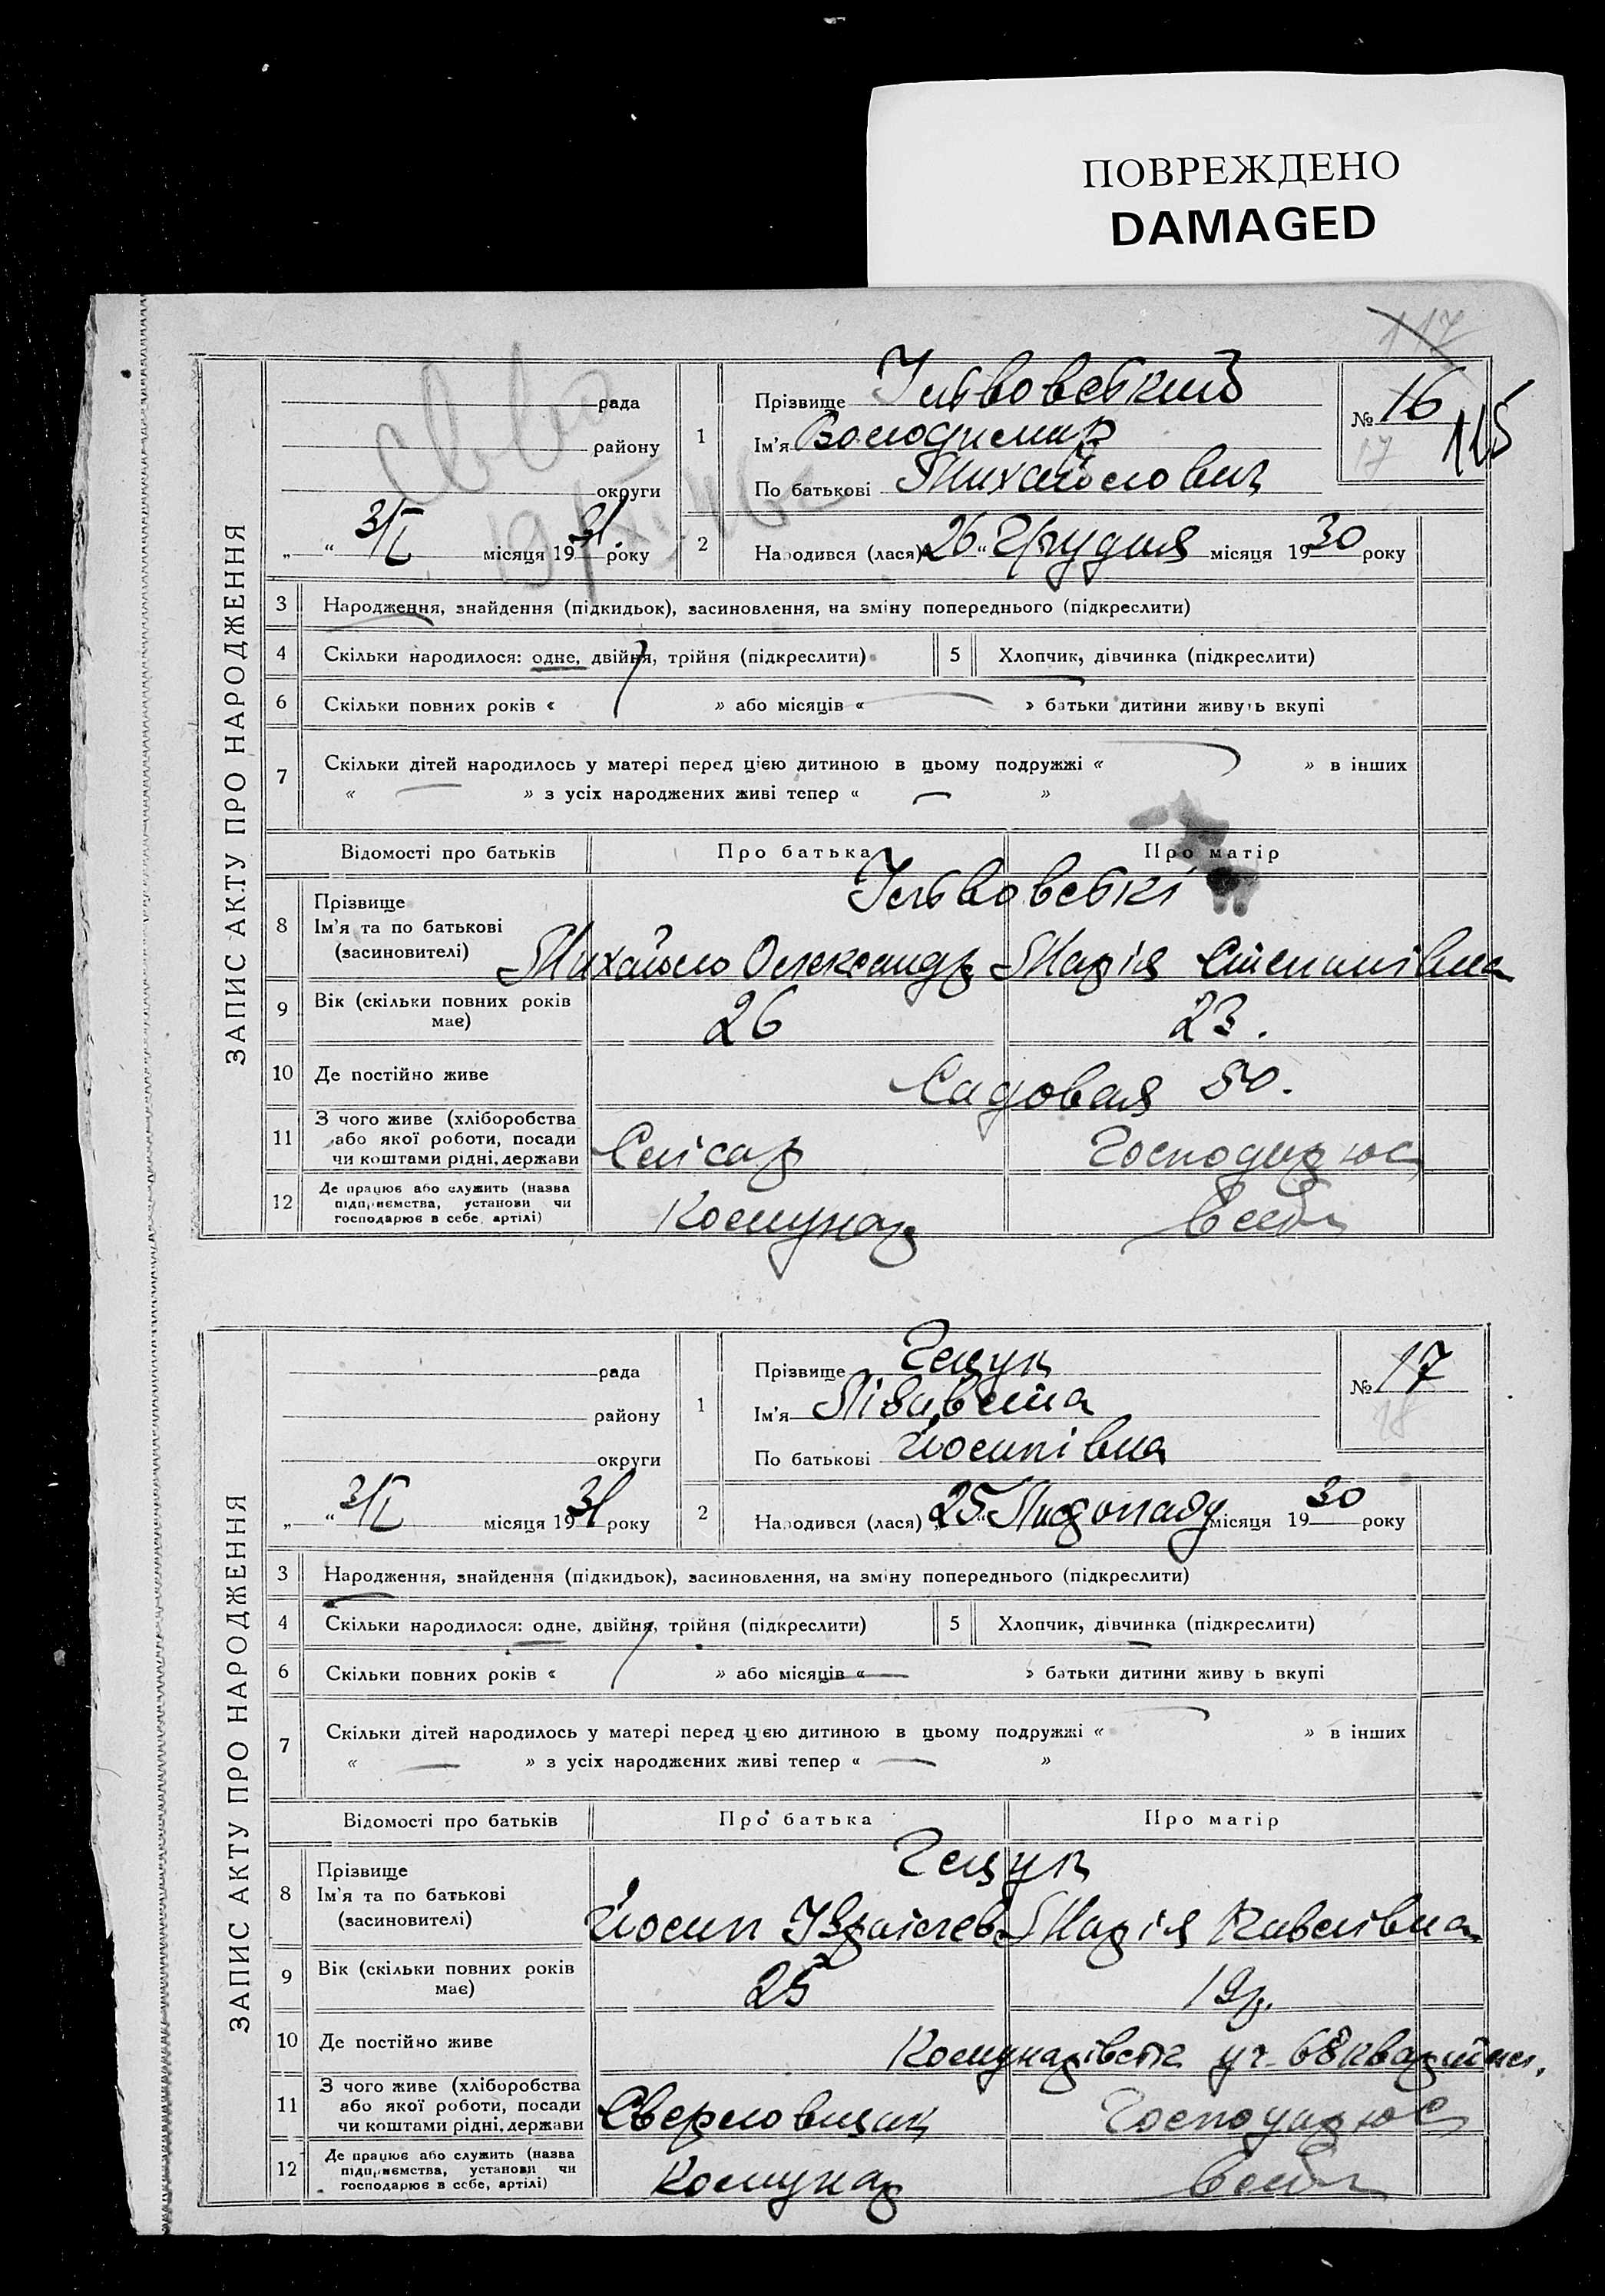 ПОВРЕЖДЕНО
DAMAGED
117
ЗАПИС АКТУ ПРО НАРОДЖЕННЯ
рада
району
округи
„ “ 3/I місяця 1931 року
1
Прізвище Ільвовський
Ім'я Володимир
По батькові Михайлович
№ 16
17
115
2
Народився (лася) 26 “ Грудня місяця 1930 року
3 Народження, знайдення (підкидьок), засиновлення, на зміну попереднього (підкреслити)
4 Скільки народилося: одне, двійня, трійня (підкреслити)
5 Хлопчик, дівчинка (підкреслити)
6 Скільки повних років « » або місяців « » батьки дитини живуть вкупі
7 Скільки дітей народилось у матері перед цією дитиною в цьому подружжі « » в інших
« — » з усіх народжених живі тепер « — »
Відомості про батьків Про батька Про матір
8 Прізвище Ільвовські
Ім'я та по батькові
(засиновителі) Михайло Олександр Марія Степанівна
9 Вік (скільки повних років
має) 26 23.
10 Де постійно живе Садовая 50.
11 З чого живе (хліборобства
або якої роботи, посади
чи коштами рідні, держави Слісар Господарює
12 Де працює або служить (назва
підприємства, установи чи
господарює в себе, артілі) Комунар в себе
ЗАПИС АКТУ ПРО НАРОДЖЕННЯ
рада
району
округи
„ “ 3/I місяця 1931 року
1
Прізвище Гецук
Ім'я Лізавета
По батькові Йосипівна
№ 17
18
2
Народився (лася) „25“ Листопаду місяця 1930 року
3 Народження, знайдення (підкидьок), засиновлення, на зміну попереднього (підкреслити)
4 Скільки народилося: одне, двійня, трійня (підкреслити)
5 Хлопчик, дівчинка (підкреслити)
6 Скільки повних років « » або місяців « — » батьки дитини живуть вкупі
7 Скільки дітей народилось у матері перед цією дитиною в цьому подружжі « » в інших
« — » з усіх народжених живі тепер « — »
Відомості про батьків Про батька Про матір
8 Прізвище Гецук
Ім'я та по батькові
(засиновителі) Йосип Ізраілев Марія Кавелівна
9 Вік (скільки повних років
має) 25 19р.
10 Де постійно живе Комунарівськ уч. 68 квартал.
11 З чого живе (хліборобства
або якої роботи, посади
чи коштами рідні, держави Сверловщик Господарює
12 Де працює або служить (назва
підприємства, установи чи
господарює в себе, артілі) Комунар в себе